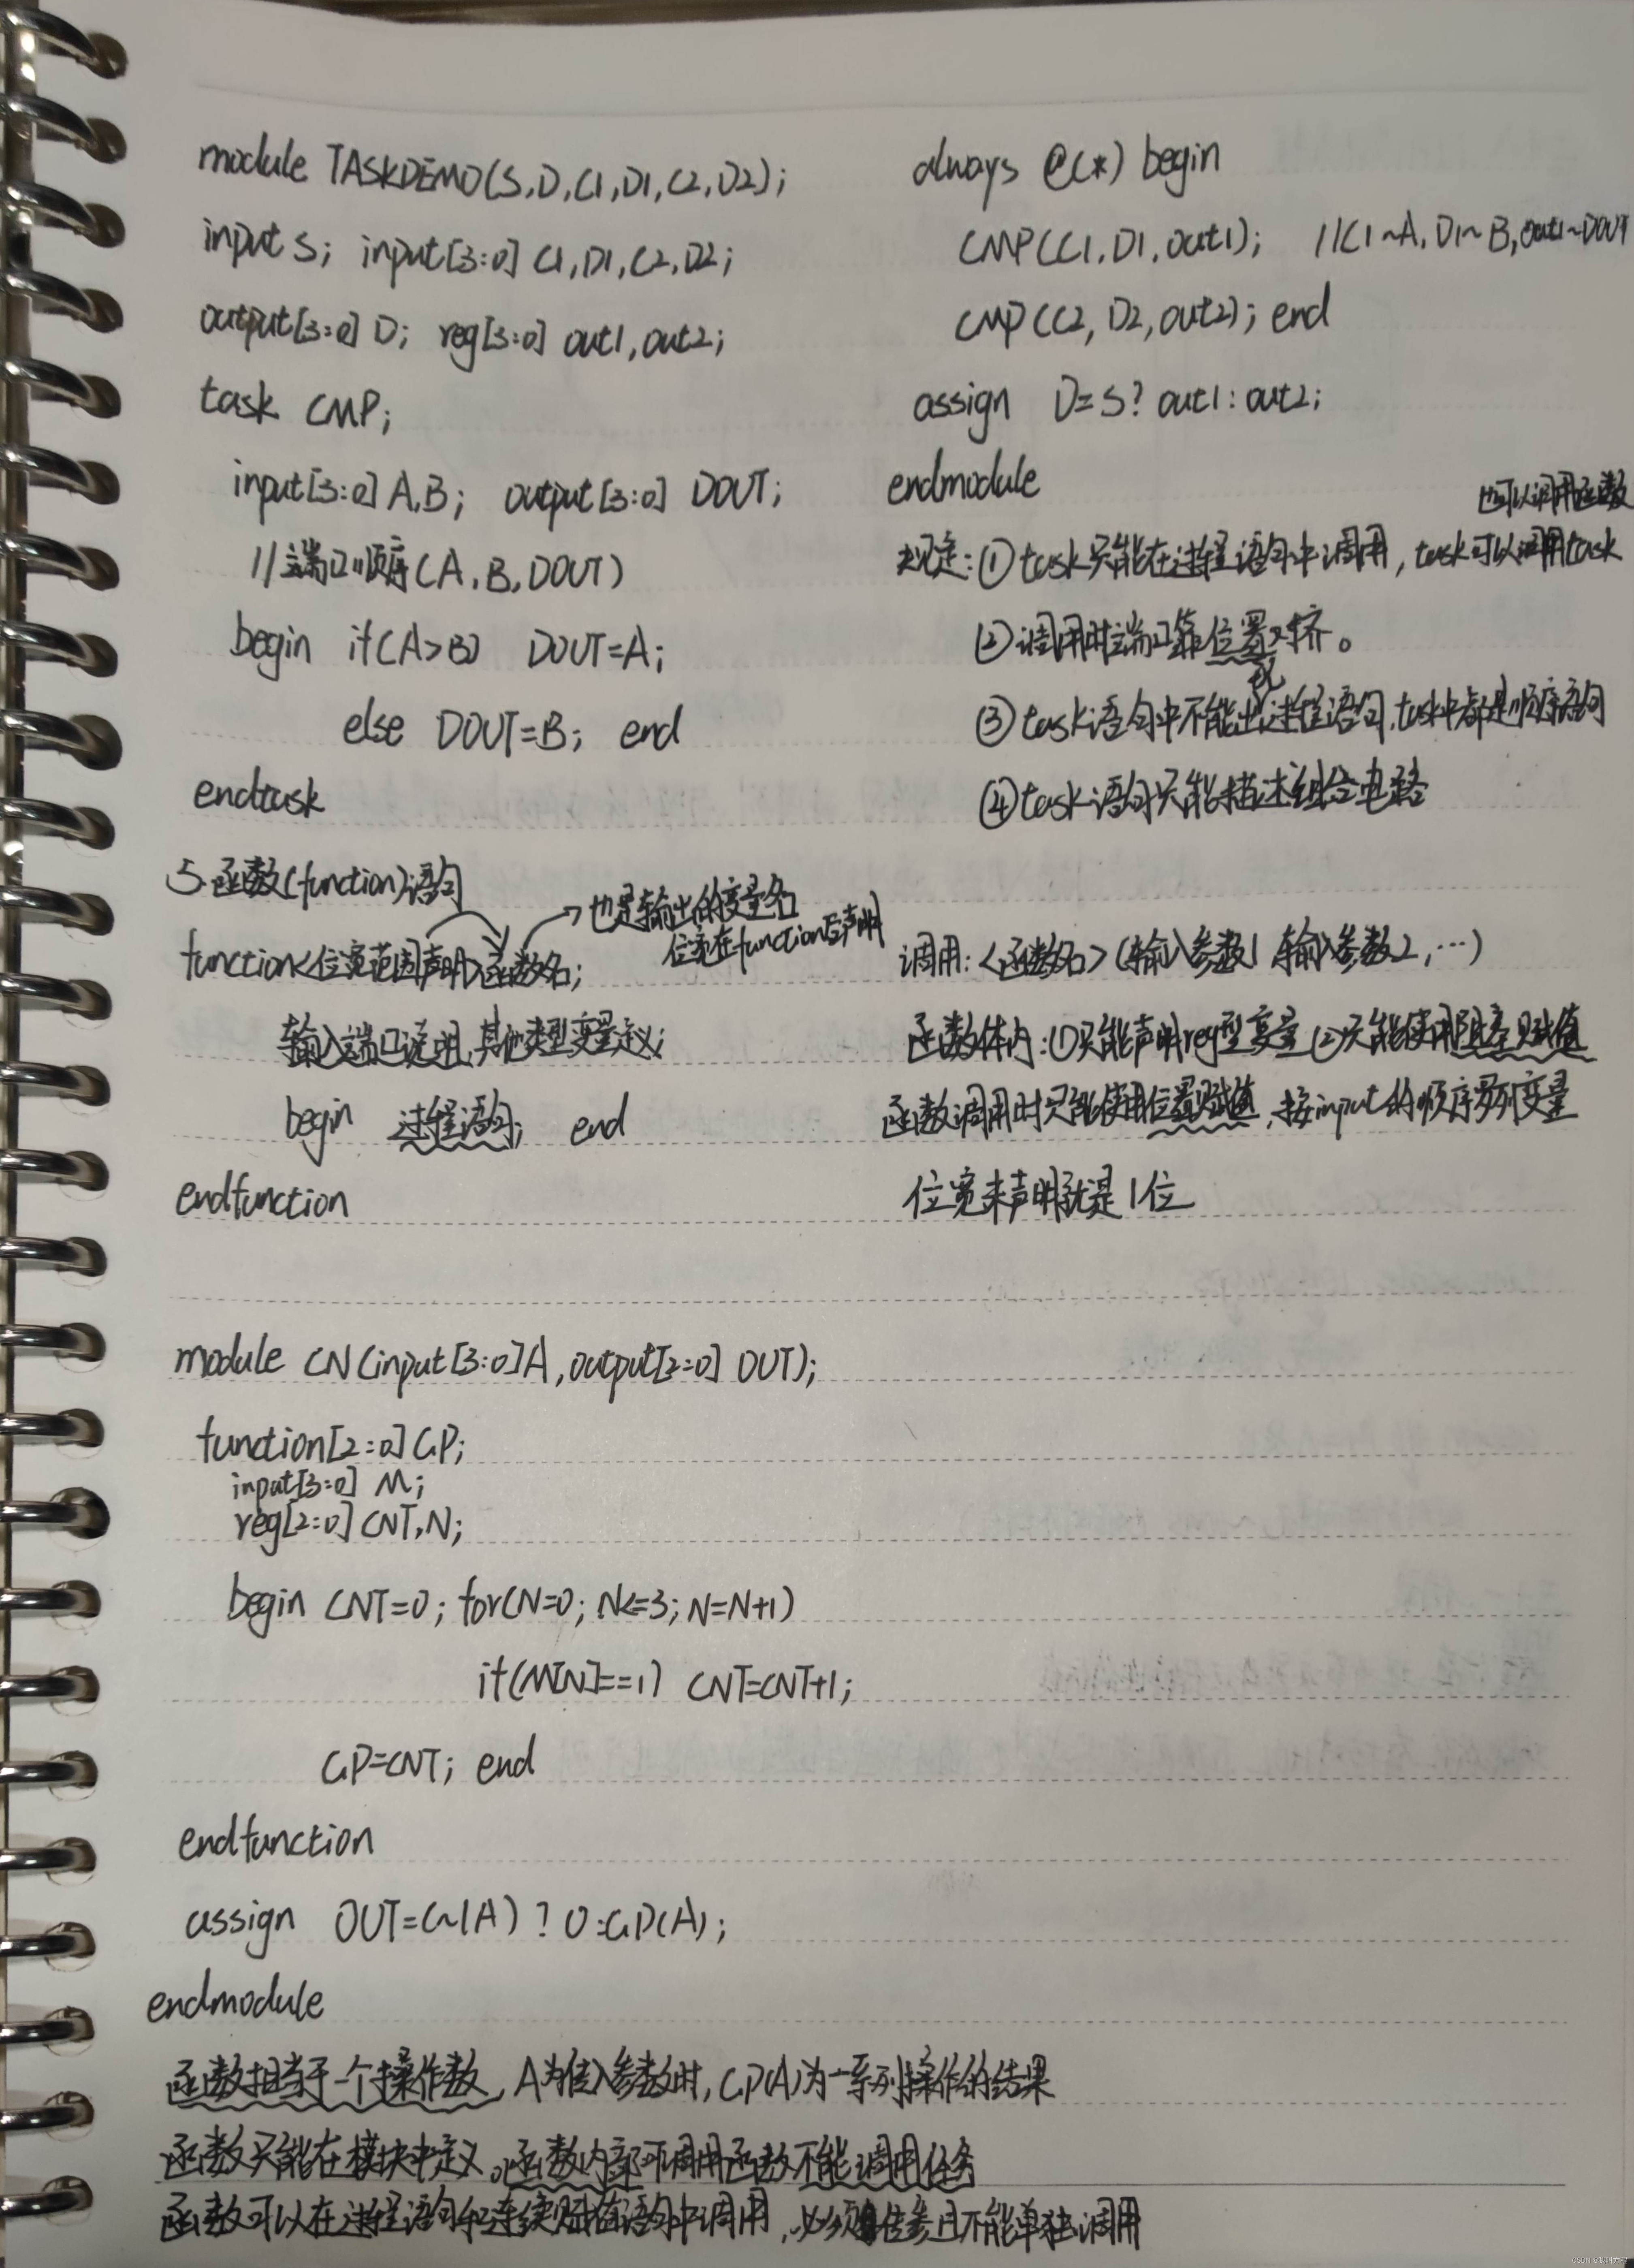 module TASKDEMO(S,D,C1,D1,C2,D2);
input S; input[3:0] C1,D1,C2,D2;
output[3:0] D; reg[3:0] out1,out2;
task CMP;
input[3:0] A,B; output[3:0] DOUT;
//端口顺序(A,B,DOUT)
begin if(A>B) DOUT=A;
else DOUT=B; end
endtask
always @(*) begin
CMP(C1,D1,out1); //C1~A,D1~B,out1~DOUT
CMP(C2,D2,out2); end
assign D=S? out1:out2;
endmodule
也可以调用函数
规定:①task只能在过程语句中调用,task可以调用task
②调用时端口靠位置对齐。
③task语句中不能出现过程语句,task中都是顺序语句
④task语句只能描述组合电路
5.函数(function)语句
也是输出的变量名
位宽在function后声明
function<位宽范围声明>函数名;
输入端口说明,其他类型变量定义;
begin 过程语句; end
endfunction
调用:<函数名>(输入参数1,输入参数2,…)
函数体内:①只能声明reg型变量②只能使用阻塞赋值
函数调用时只能使用位置赋值,按input的顺序罗列变量
位宽未声明就是1位
module CN(input[3:0]A,output[2:0] OUT);
function[2:0] GP;
input[3:0] M;
reg[2:0] CNT,N;
begin CNT=0; for(N=0; N<=3; N=N+1)
if(M[N]==1) CNT=CNT+1;
GP=CNT; end
endfunction
assign OUT=(~|A) ? 0:GP(A);
endmodule
函数相当于一个操作数,A为传入参数时,GP(A)为一系列操作的结果
函数只能在模块中定义。函数内部可调用函数不能调用任务
函数可以在过程语句和连续赋值语句中调用,必须传参且不能单独调用